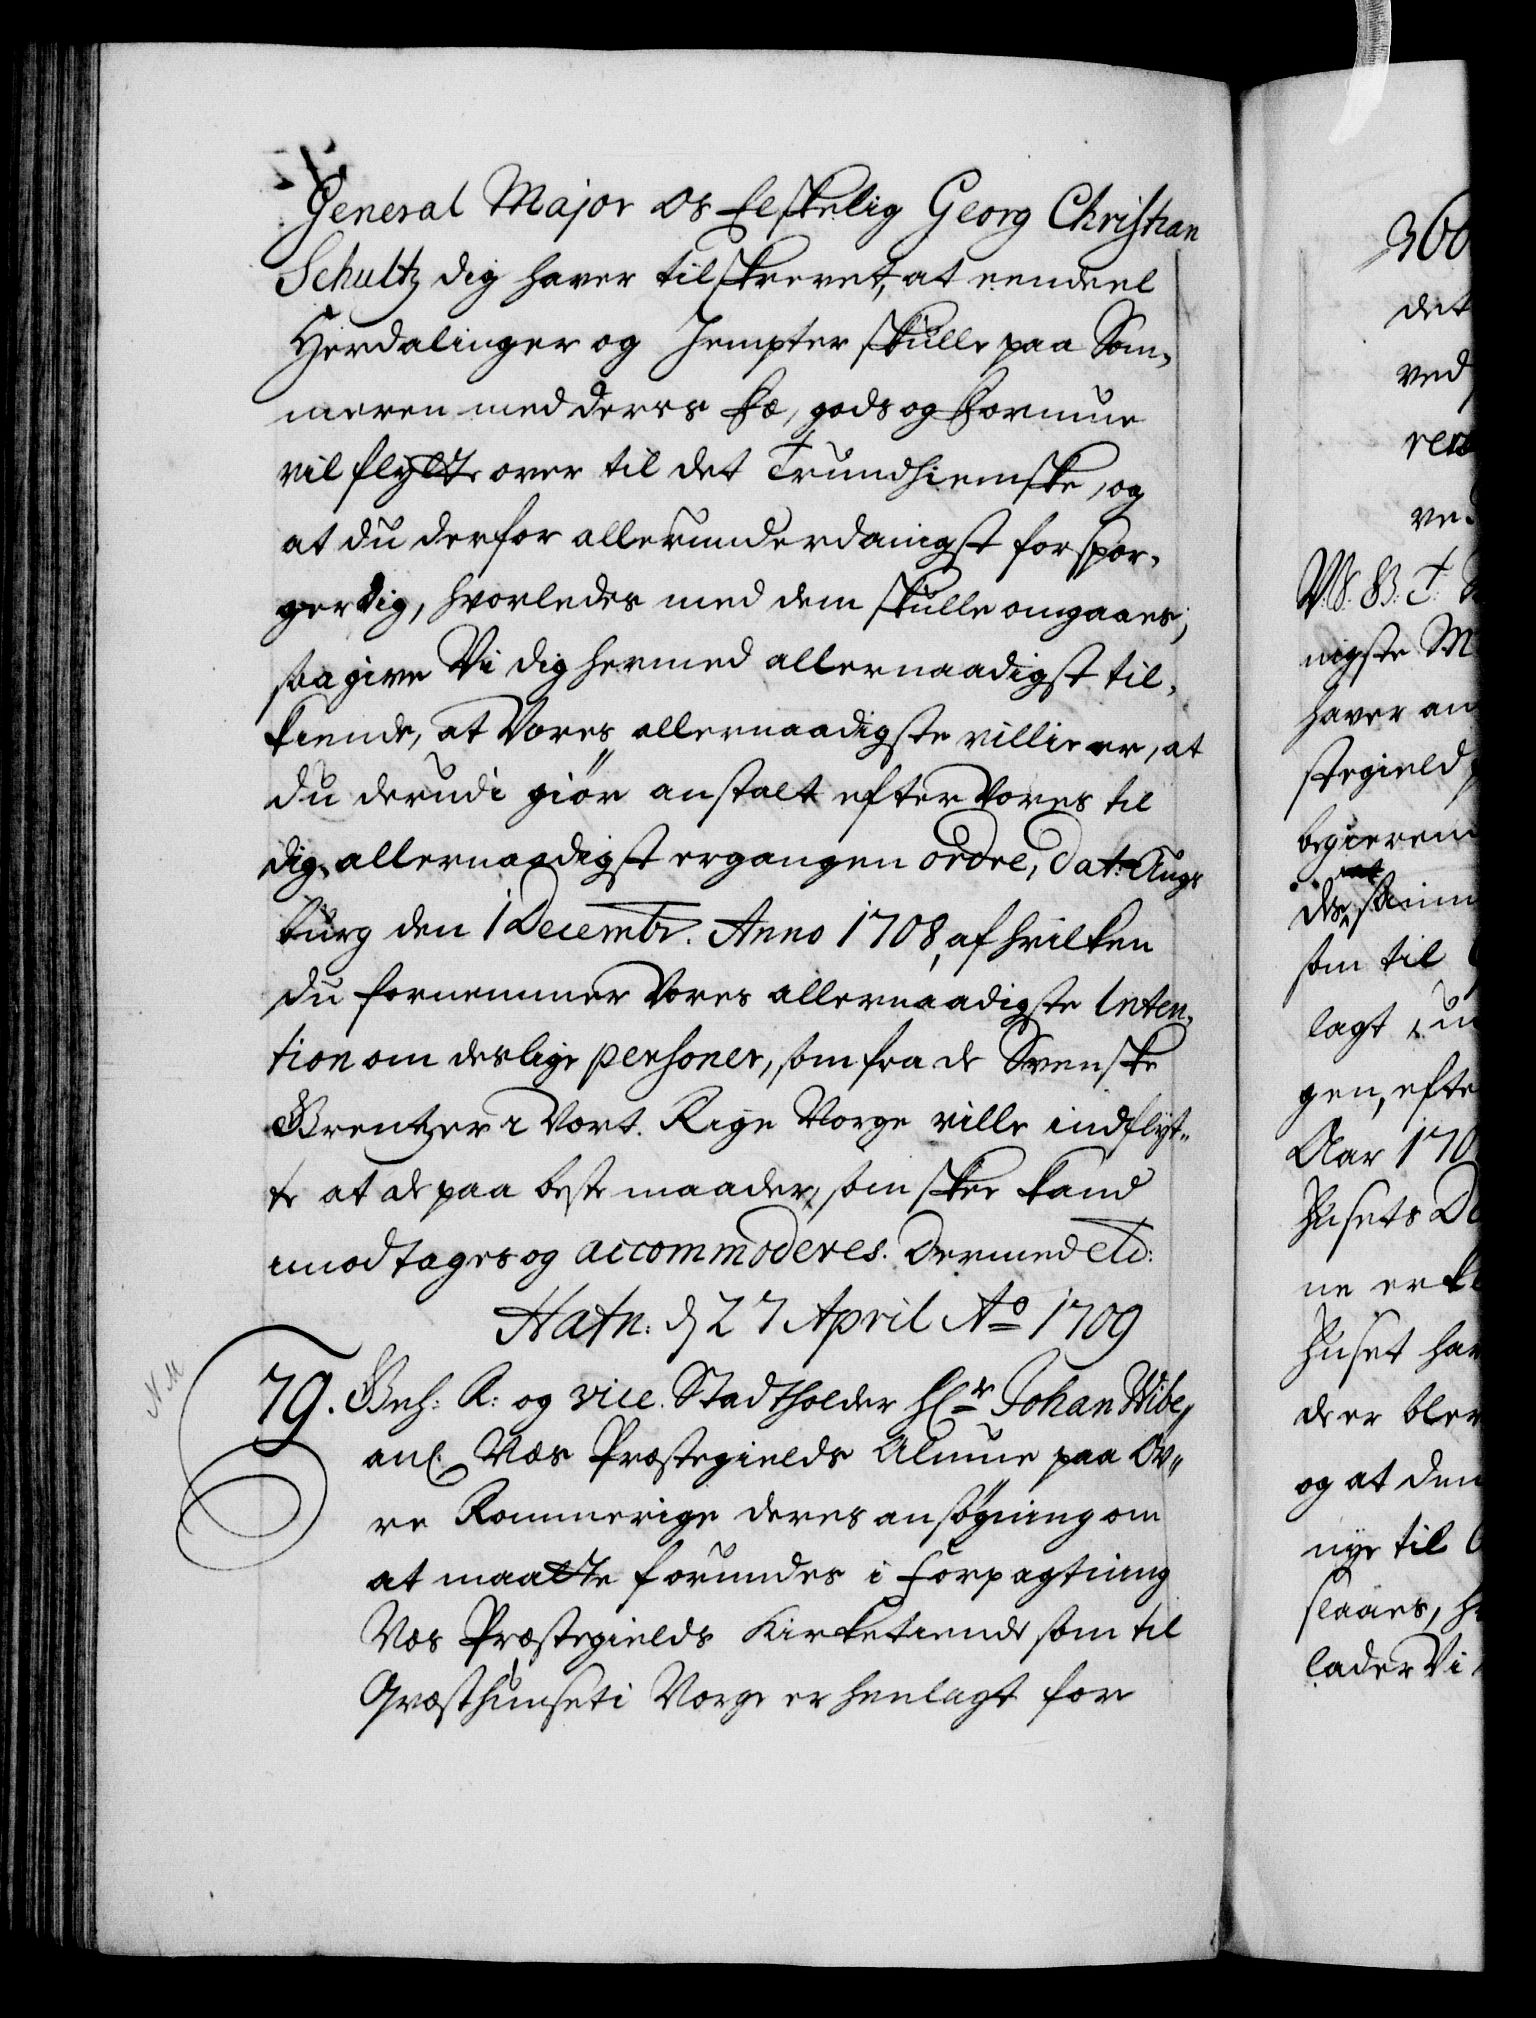 General Major Os Elskelig Georg Christian
Schultz dig haver tilskrevet, at eendeel
Herdalinger og Jempter skulle paa Som-
meren med deres Fæ, gods og Formue
vil flytte over til det Trundhiemske, og
at du derfor allerunderdanigst forspør-
ger dig, hvorledes med dem skulle omgaaes,
saa give Vi dig hermed allernaadigst til-
kiende, at Vores allernaadigste villie er, at
du derudi giør anstalt efter Vores til
dig allernaadigst ergangen ordre, dat: Augs
burg den 1 Decembr. Anno 1708, af hvilken
du fornemmer Vores allernaadigste Inten-
tion om deslige personer, som fra de Svenske
Grentzer i Vort Rige Norge ville indflyt-
te at de paa beste maader, som skee kand
imodtages og accommoderes. Dermed etc:
Hafn: d 27 April Ao 1709
N M
79. Geh: R: og vice Stadtholder Hr Johan Wibe,
anl. Næs Præstegields Almue paa Øv-
re Rommerige deres ansøgning om
at maatte forundes i Forpagtning
Næs Præstegields Kirketiende som til
Qvæsthuuset i Norge er henlagt for
360
det
ved
ved
V. G. T.
nigste M
haver an
stegield
begieren
at
som til
lagt
gen, efte
Aar 170
huset hav
de er blev
og at den
nye til
slaaes, h
lader Vi